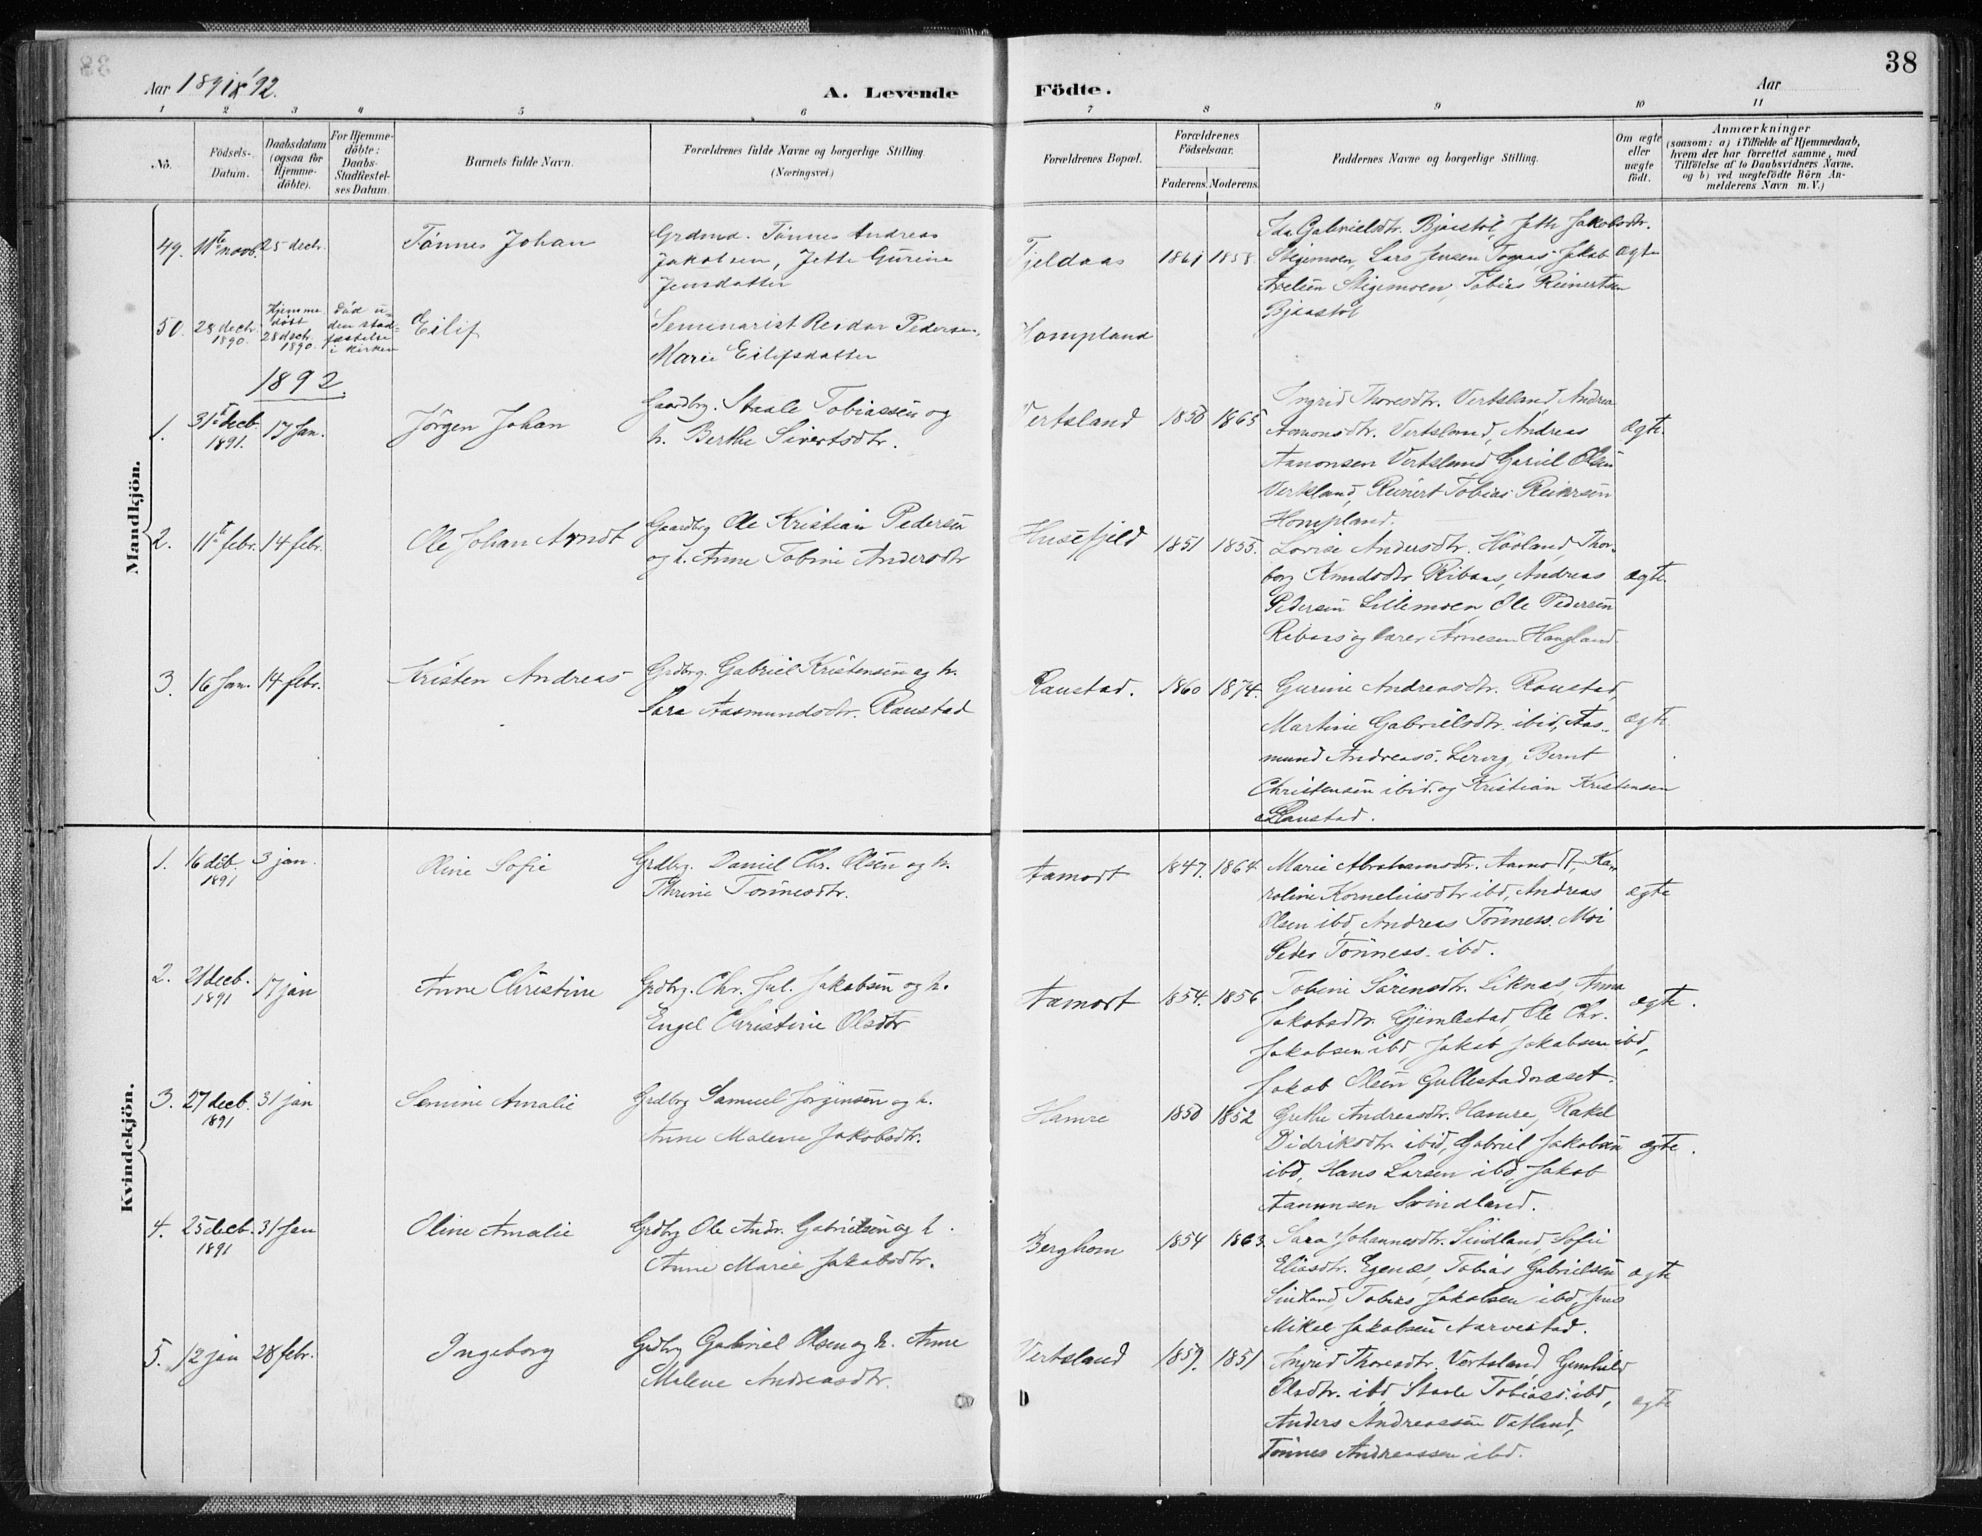 38
Aar 1891 & '92.
A. Levende Födte.
Aar
1 2 3 4 5 6 7 8 9 10 11
No.
Födsels-Datum.
Daabsdatum (ogsaa for Hjemme-döbte).
For Hjemme-döbte: Daabs-Stadfæstel-ses Datum.
Barnets fulde Navn.
Forældrenes fulde Navne og borgerlige Stilling. (Næringsvei.)
Forældrenes Bopæl.
Forældrenes Födselsaar.
Faderens. Moderens.
Faddernes Navne og borgerlige Stilling.
Om ægte eller uægte födt.
Anmærkninger
(saasom: a) i Tilfælde af Hjemmedaab, hvem der har forrettet samme, med Tilföielse af to Daabsvidners Navne. og b) ved uægtefödte Börn An-melderens Navn m. V.)
Mandkjön.
49. 11te novb. 25 decb. Tönnes Johan
Grdmd. Tönnes Andreas
Jakobsen, Jette Gurine
Jensdatter
Fjeldaas 1861 1858.
Ida Gabrielsdtr. Bjaastöl, Jette Jakobsdtr.
Stigemoen, Lars Jensen Jakob
Axelsen Stigemoen, Tobias Reinertsen
Bjaastöl
ægte
50. 28 decb. 1890. Hjemme döbt 28 decb. 1890. Död u-den stad-fæstelse i kirken
Eilif
Seminarist Reidar Pedersen,
Marie Eilifsdatter
Hompland
1892.
1. 31te decb. 1891. 17 Jan. Jörgen Johan
Gaardbr. Staale Tobiassen og
h. Berthe Sivertsdtr.
Vertsland 1850 1865
Ingrid Thoresdtr. Vertsland, Andrea
Aamonsdtr. Vertsland, Andreas
Aanonsen Vertsland, Gabriel Olsen
Vertsland, Reinert Tobias
Hompland.
ægte.
2. 11te febr. 14 febr. Ole Johan Arndt
Gaardbr Ole Kristian Pedersen
og h. Anne Tobine Andersdtr
Husefjeld 1851 1855.
Lovise Andersdtr. Høiland, Thor-
borg Knudsdtr Ribaas, Andreas
Pedersen Lillemoen, Ole Pedersen
Ribaas og lærer Arnesen Haugland.
ægte.
3. 16 Jan. 14 febr. Kristen Andreas
Grdbrg. Gabriel Kristensen og h.
Sara Aasmundsdtr. Raustad
Raustad. 1860 1874.
Gurine Andreasdtr. Raustad,
Martine Gabrielsdtr. ibid, Aas-
mund Andreass. Lervig, Bernt
Christensen ibid. og Kristian Kristensen
Raustad.
ægte.
Kvindekjön.
1. 16 dcb. 1891 3 jan. Oline Sofie
Grdbrg. Daniel Chr. Olsen og h.
Thrine Tönnesdtr.
Aamodt 1847. 1864.
Marie Abrahamsdtr. Aamodt, Ka-
roline Korneliusdtr ibd, Andreas
Olsen ibd, Andreas Tönness. Moi
Peder Tönness. ibd.
ægte
2. 21 decb. 1891 17 jan Anne Christine
Grdbrg. Chr. Jul. Jakobsen og h.
Engel Christine Olsdtr
Aamodt 1854. 1856.
Tobine Sörensdtr. Liknas, Anna
Jakobsdtr. Gjemlestad, Ole Chr.
Jakobsen ibd, Jakob Jakobsen ibd,
Jakob Olsen Gullestadnæset.
ægte.
3. 27 decb. 1891 31 jan Semine Amalie
Grdbrg Samuel Jörgensen og h.
Anne Malene Jakobsdtr.
Hamre 1850 1852
Grethe Andreasdtr. Hamre, Rakel
Didriksdtr. ibid, Gabriel Jakobsen
ibd, Hans Larsen ibd, Jakob
Aanunsen Svindland.
ægte.
4. 25 decb. 1891 31 Jan Oline Amalie
Grdbrg Ole Andr. Gabrielsen og h.
Anne Marie Jakobsdtr.
Berghom 1854 1863.
Sara Johannesdtr. Sindland, Sofie
Eliasdtr. Egenæs, Tobias Gabrielsen
Sindland, Tobias Jakobsen ibd, Jens
Mikel Jakobsen Narvestad.
ægte
5. 12 jan 28 febr. Ingeborg
Grdbrg Gabriel Olsen og h. Anne
Malene Andreasdtr.
Vertsland 1859. 1851
Ingrid Thoresdtr. Vertsland, Gunhild
Olsdtr. ibd, Staale Tobiass. ibd,
Anders Andreassen Vatland,
Tönnes Andreassen ibd.
ægte